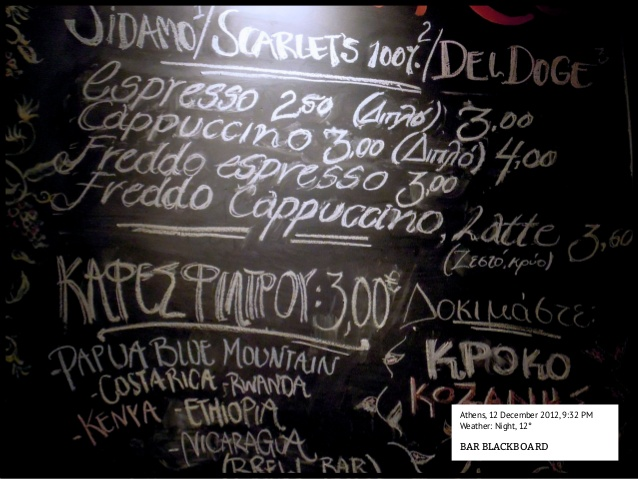 SIDAMO¹/SCARLET'S 100%²/DEL DOGE³
Espresso 2.50 (Διπλό) 3.00
Cappuccino 3,00 (Διπλό) 4,00
Freddo espresso 3,00
Freddo Cappuccino, Latte 3,60
(Ζεστό, κρύο)
ΚΑΦΕΣ ΦΙΛΤΡΟΥ: 3,00€
Δοκιμάστε:
-PAPUA BLUE MOUNTAIN
ΚΡΟΚΟ
-COSTARICA -RWANDA
ΚΟΖΑΝΗΣ
-KENYA -ETHIOPIA
-NICARAGUA
Athens, 12 December 2012, 9:32 PM
Weather: Night, 12°
BAR BLACKBOARD